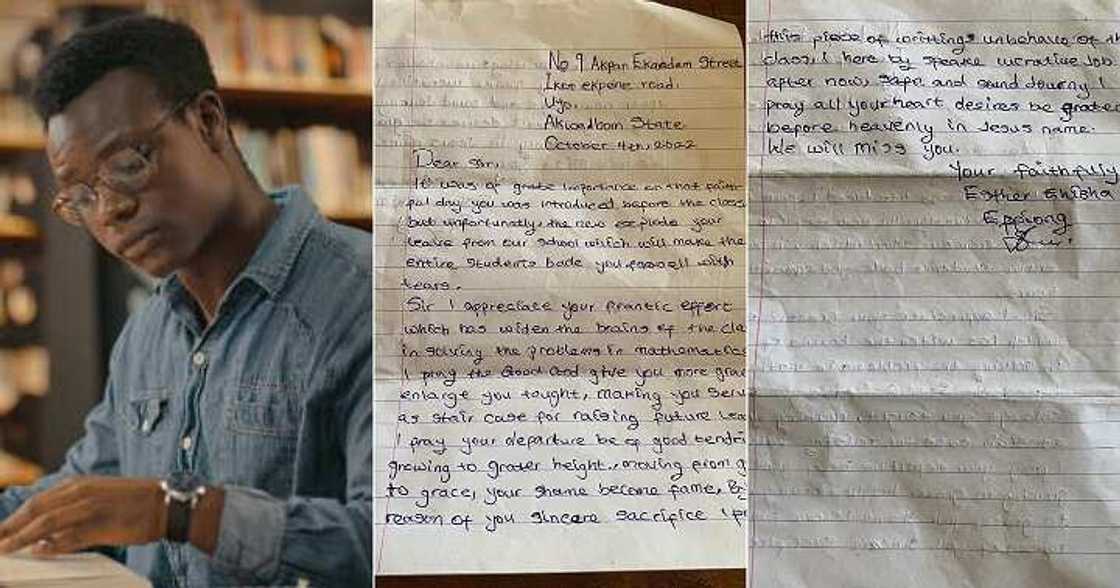 No 9 Akpan Ekandem Street
Ikot ekpene road.
Uyo.
Akwaibom State
October 4th, 2022
Dear Sir,
It was of grate importance on that faith
ful day you was introduced before the class
but unfortunatly, the new explode your
leave from our school which will make the
entire students bade you farewell with
tears.
Sir I appreciace your frantic effort
which has widen the brains of the cla
in solving the problems in mathematics
I pray the Good God give you more grac
enlarge you tought, making you serv
as stair case for raising future lea
I pray your departure be of good tendri
growing to grater height, moving from g
to grace, your shame become fame, By
reason of you sincere sacrifice I pr
this piece of writting unbehave of th
class, I here by speake lucrative Job
after now, safe and sound Journy I
pray all your heart desires be grate
before heavenly in Jesus name.
We will miss you.
Your faithfully
Esther
Effiong